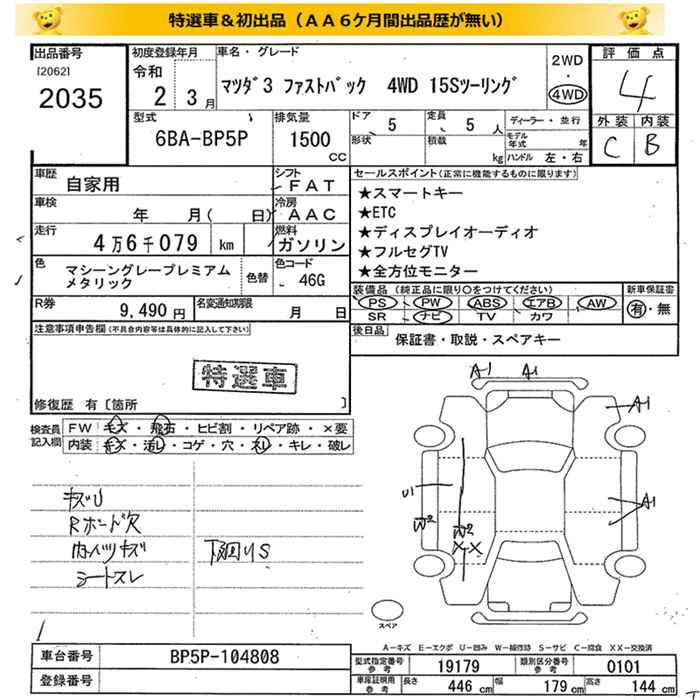 特選車＆初出品（ＡＡ６ケ月間出品歴が無い）
出品番号
[2062]
2035
初度登録年月
令和
2 3月
車名・グレード
マツダ3 ファストバック 4WD 15Sツーリング
2WD
・
4WD
評価点
4
型式
6BA-BP5P
排気量
1500
CC
ドア
5
形状
定員
5 人
積載
kg
ディーラー・並行
モデル年式 年
ハンドル 左・右
外装 内装
C B
車歴
自家用
シフト
FAT
車検
年 月( 日)
冷房
AAC
走行
4万6千079 km
燃料
ガソリン
色
マシーングレープレミアム
メタリック
色替
色コード
46G
R券
9,490円
名変通知期限
月 日
セールスポイント(正常に機能するものに限ります)
★スマートキー
★ETC
★ディスプレイオーディオ
★フルセグTV
★全方位モニター
装備品 (純正品に限り○をつけてください)
PS PW ABS エアB AW
SR ナビ TV カワ
新車保証書
有・無
後日品
保証書・取説・スペアキー
注意事項申告欄(不具合内容等は具体的に記入して下さい)
特選車
修復歴 有〔箇所 〕
検査員
記入欄
FW キズ・飛石・ヒビ割・リペア跡・×要
内装 キズ・汚レ・コゲ・穴・スレ・キレ・破レ
キズU
Rボード穴
内ハリキズ
シートスレ
下廻りS
A1 A1
A1
A1
U1
W2
W2
XX
スペア
A－キズ E－エクボ U－凹み W－補修跡 S－サビ C－腐食 XX－交換済
車台番号
BP5P-104808
登録番号
型式指定番号
参考
19179
類別区分番号
参考
0101
車庫証明用
参考
長さ 446 cm
幅 179 cm
高さ 144 cm